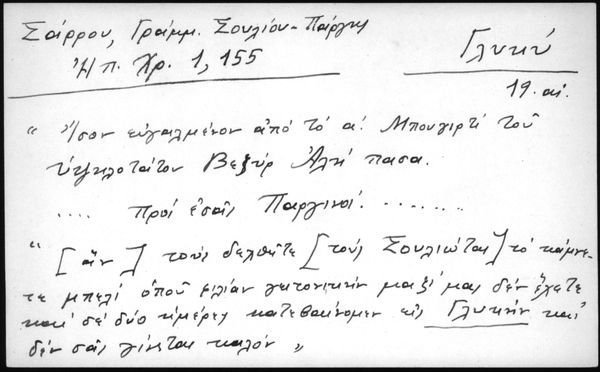 Σάρρου, Γράμμ. Σουλίου - Πάργης
Ἠπ. Χρ. 1, 155
Γλυκύ
19. αἰ.
" Ἴσον εὐγαλμένον ἀπό τό α! Μπουγιρτί τοῦ
ὑψηλοτάτου Βεζύρ Ἀλῆ πασα.
.... Πρός ἐσᾶς Παργινοί. .......
" [ἄν] τούς δεχθῆτε [τούς Σουλιώτας] τό κάμνε-
τε μπελί ὁποῦ φιλίαν γειτονικήν μαζί μας δέν ἔχετε
καί σέ δύο ἡμερες κατεβαίνομεν εἰς Γλυκήν καί
δέν σᾶς γίνεται καλόν "